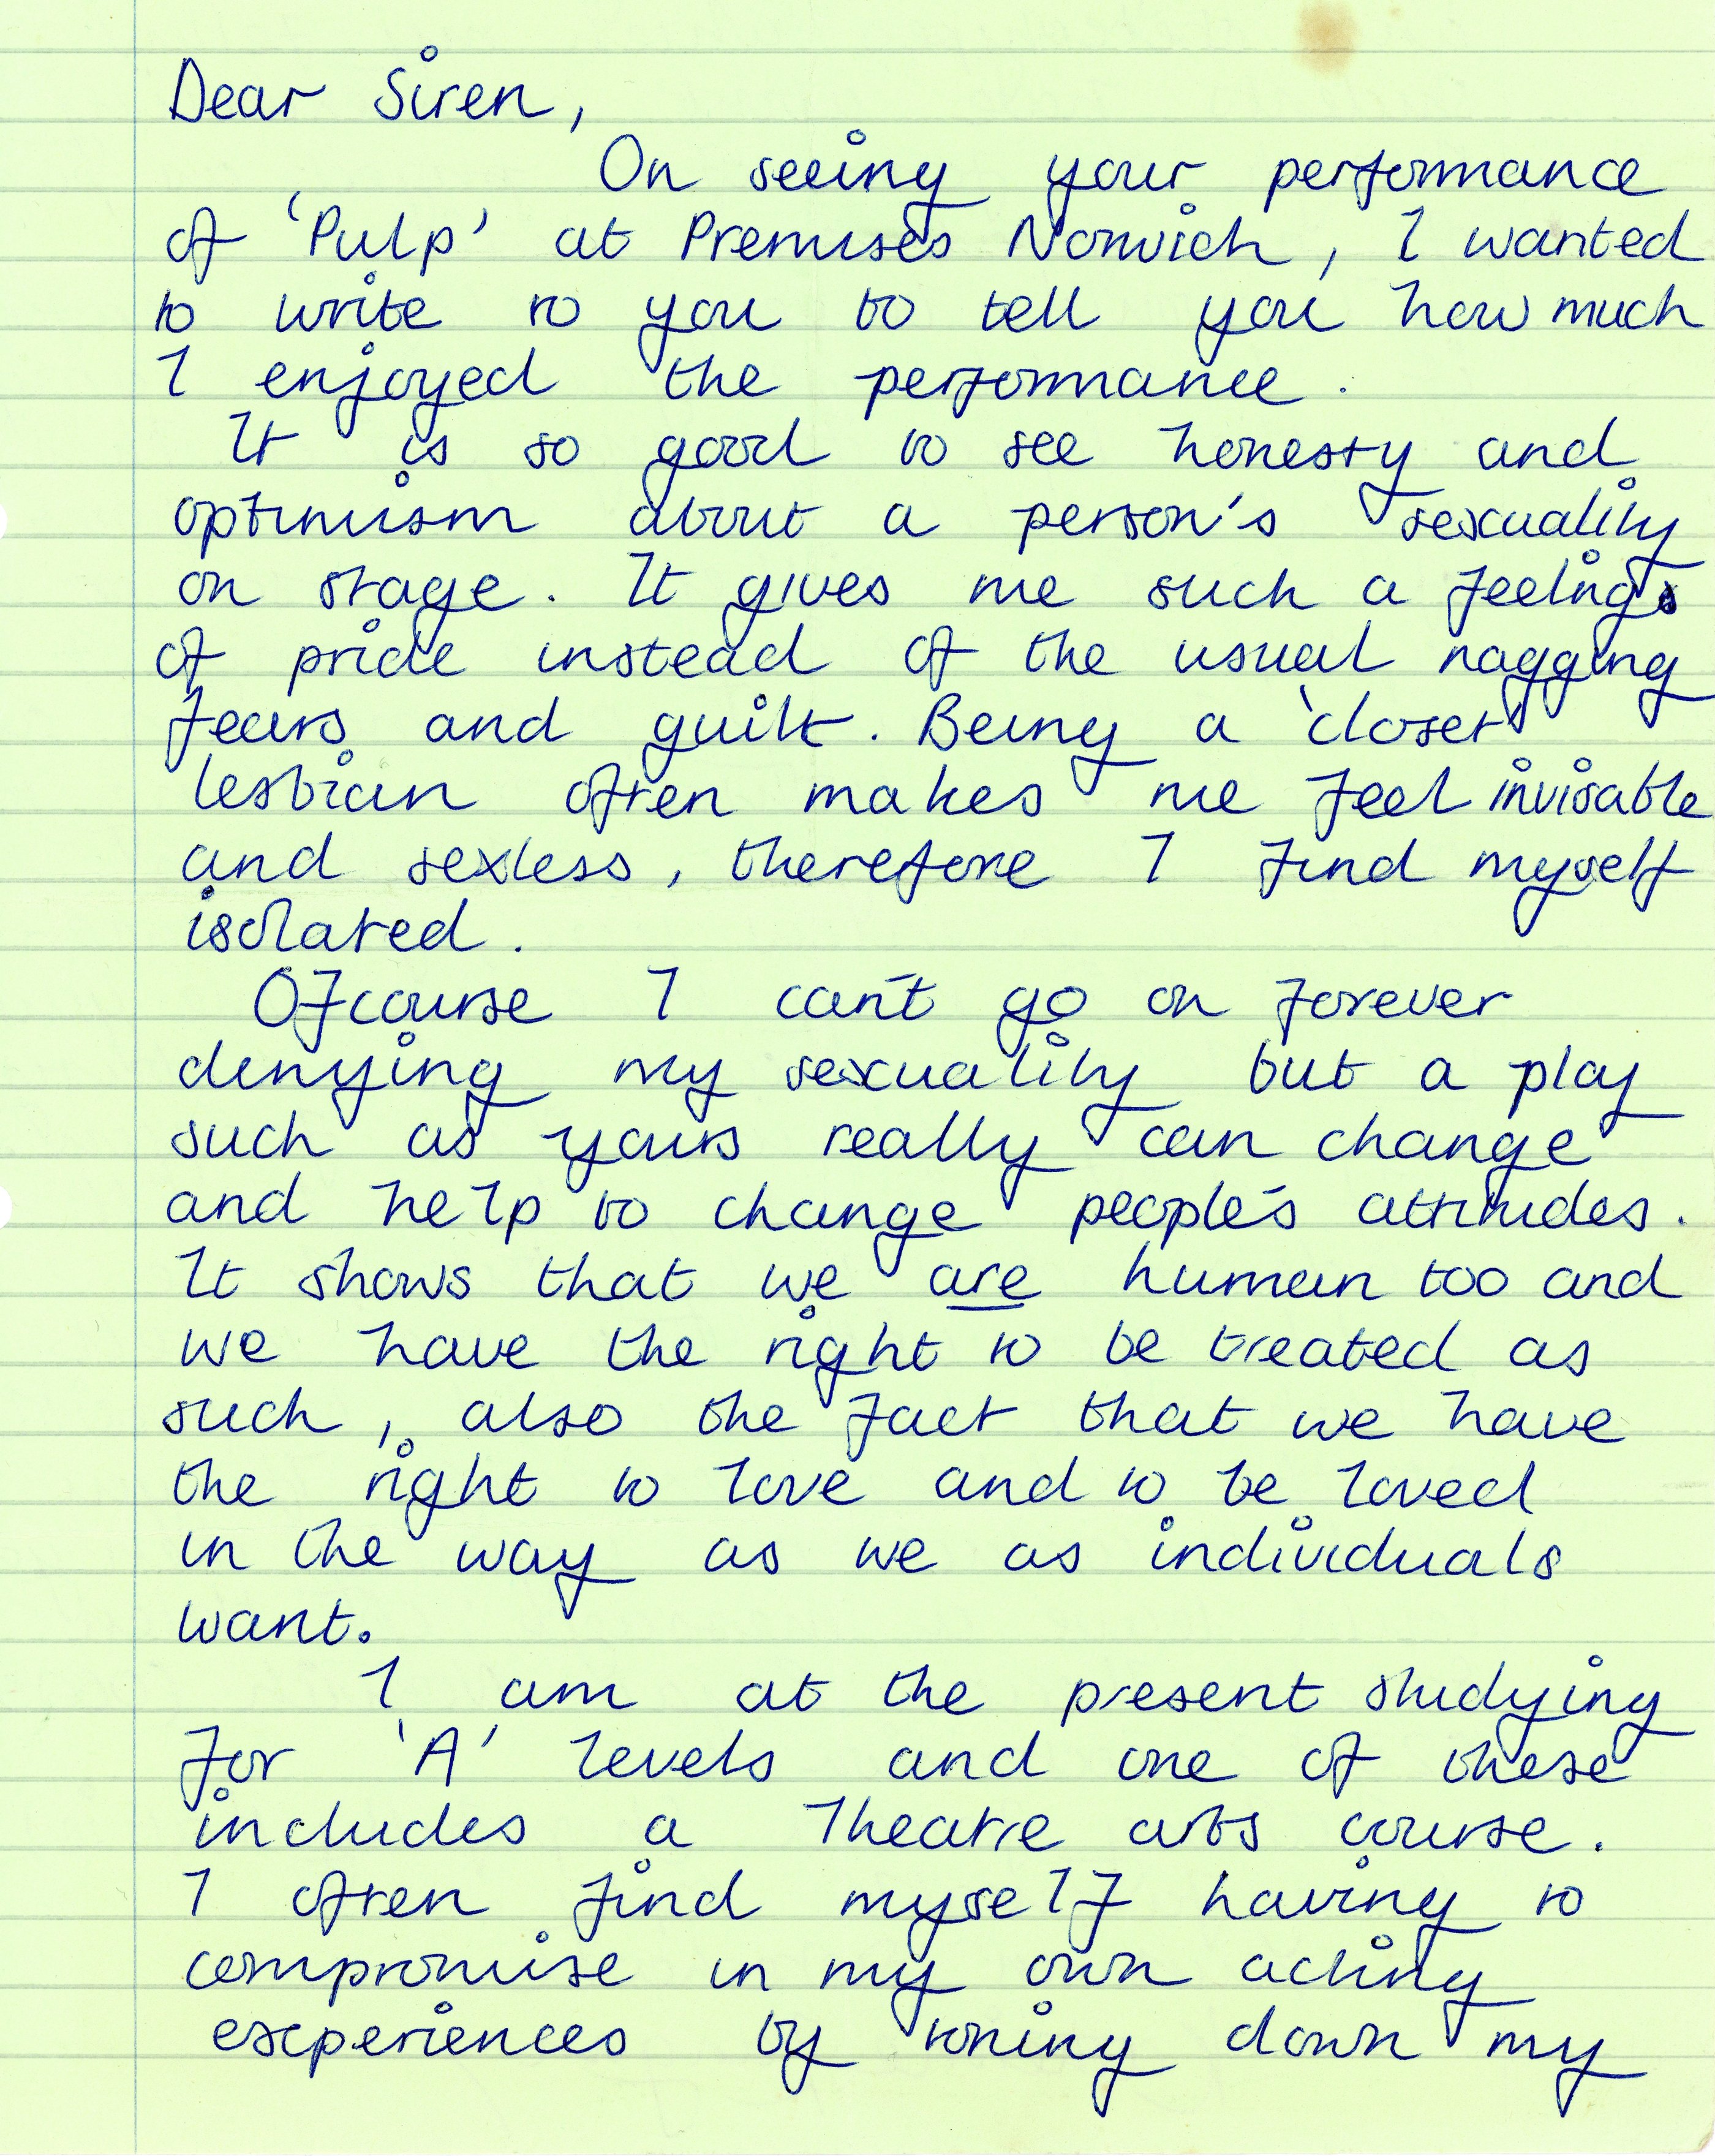 Dear Siren,
On seeing your performance
of 'Pulp' at Premises Norwich, I wanted
to write to you to tell you how much
I enjoyed the performance.
It is so good to see honesty and
optimism about a person's sexuality
on stage. It gives me such a feeling
of pride instead of the usual nagging
fears and guilt. Being a 'closet'
lesbian often makes me feel invisable
and sexless, therefore I find myself
isolated.
Ofcourse I can't go on forever
denying my sexuality but a play
such as yours really can change
and help to change people's attitudes.
It shows that we are human too and
we have the right to be treated as
such, also the fact that we have
the right to love and to be loved
in the way as we as individuals
want.
I am at the present studying
for 'A' levels and one of these
includes a Theatre arts course.
I often find myself having to
compromise in my own acting
experiences by toning down my